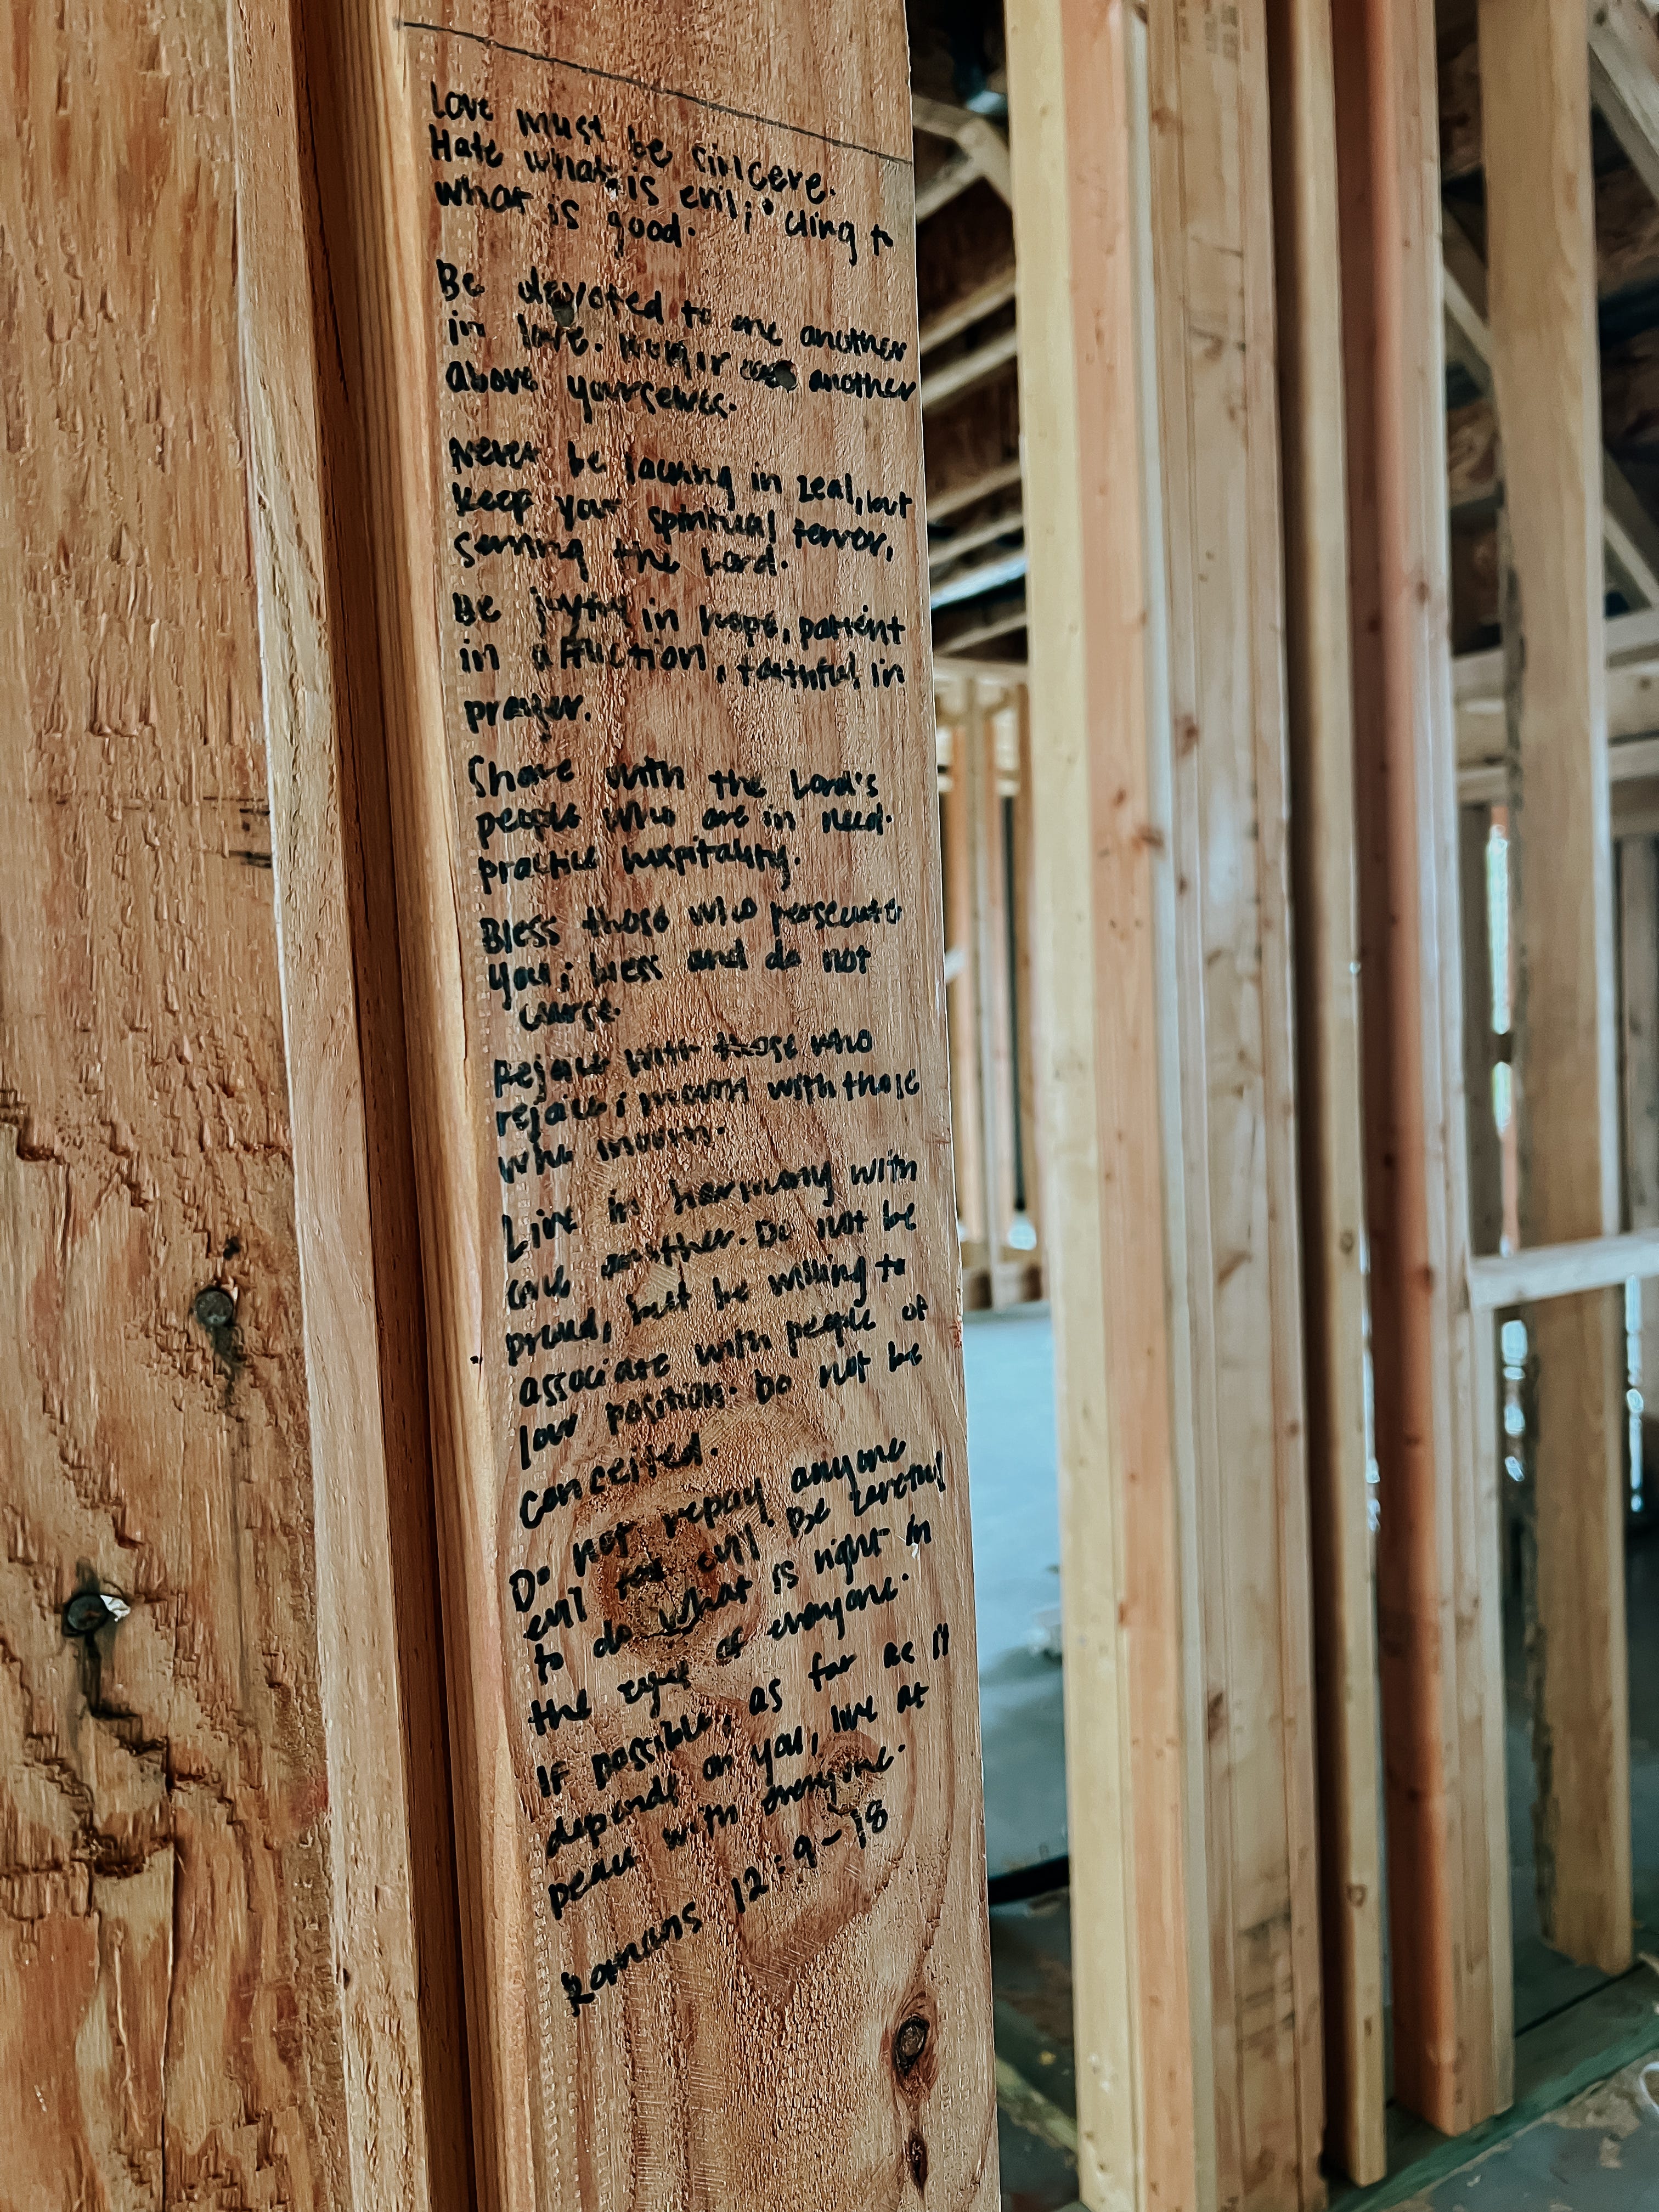 Love must be sincere.
Hate what is evil; cling to
what is good.
Be devoted to one another
in love. Honor one another
above yourselves.
Never be lacking in zeal, but
keep your spiritual fervor,
serving the Lord.
Be joyful in hope, patient
in affliction, faithful in
prayer.
Share with the Lord's
people who are in need.
practice hospitality.
Bless those who persecute
you; bless and do not
curse.
Rejoice with those who
rejoice; mourn with those
who mourn.
Live in harmony with
one another. Do not be
proud, but be willing to
associate with people of
low position. Do not be
conceited.
Do not repay anyone
evil for evil. Be careful
to do what is right in
the eyes of everyone.
If possible, as far as it
depends on you, live at
peace with everyone.
Romans 12:9-18